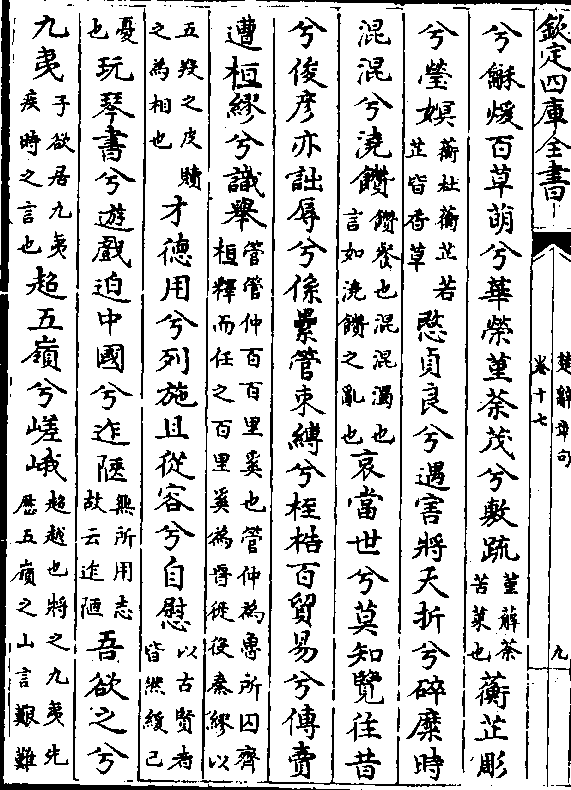 欽定四庫全書
楚辭章句
卷十七
九
兮龢煖百草萌兮華榮堇荼茂兮敷疏堇薢荼苦菜也蘅芷彫
兮瑩嫇蘅杜蘅芷若芷皆香草愍貞良兮遇害將夭折兮碎糜時
混混兮澆饡饡餐也混混濁也言如澆饡之亂也哀當世兮莫知覽往昔
兮俊彥亦詘辱兮係纍管束縛兮桎梏百貿易兮傳賣
遭桓繆兮識舉管管仲百百里奚也管仲為魯所囚齊桓釋而任之百里奚為晉徒役秦繆以
五羖之皮贖之為相也才德用兮列施且從容兮自慰以古賢者皆然緩己
憂也玩琴書兮遊戲迫中國兮迮陿無所用志故云迮陿吾欲之兮
九夷子欲居九夷疾時之言也超五嶺兮嵯峨超越也將之九夷先歷五嶺之山言艱難